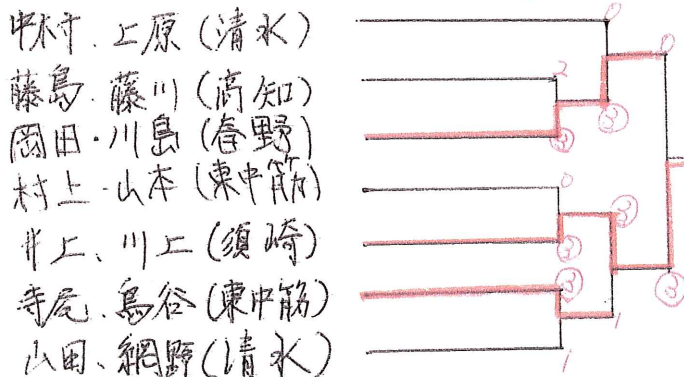 中村、上原(清水)
藤島、藤川(高知)
岡田・川島(春野)
村上・山本(東中筋)
井上、川上(須崎)
寺尾、鳥谷(東中筋)
山田、網野(清水)
0
0
2
③
③
0
③
③
②
1
1
③